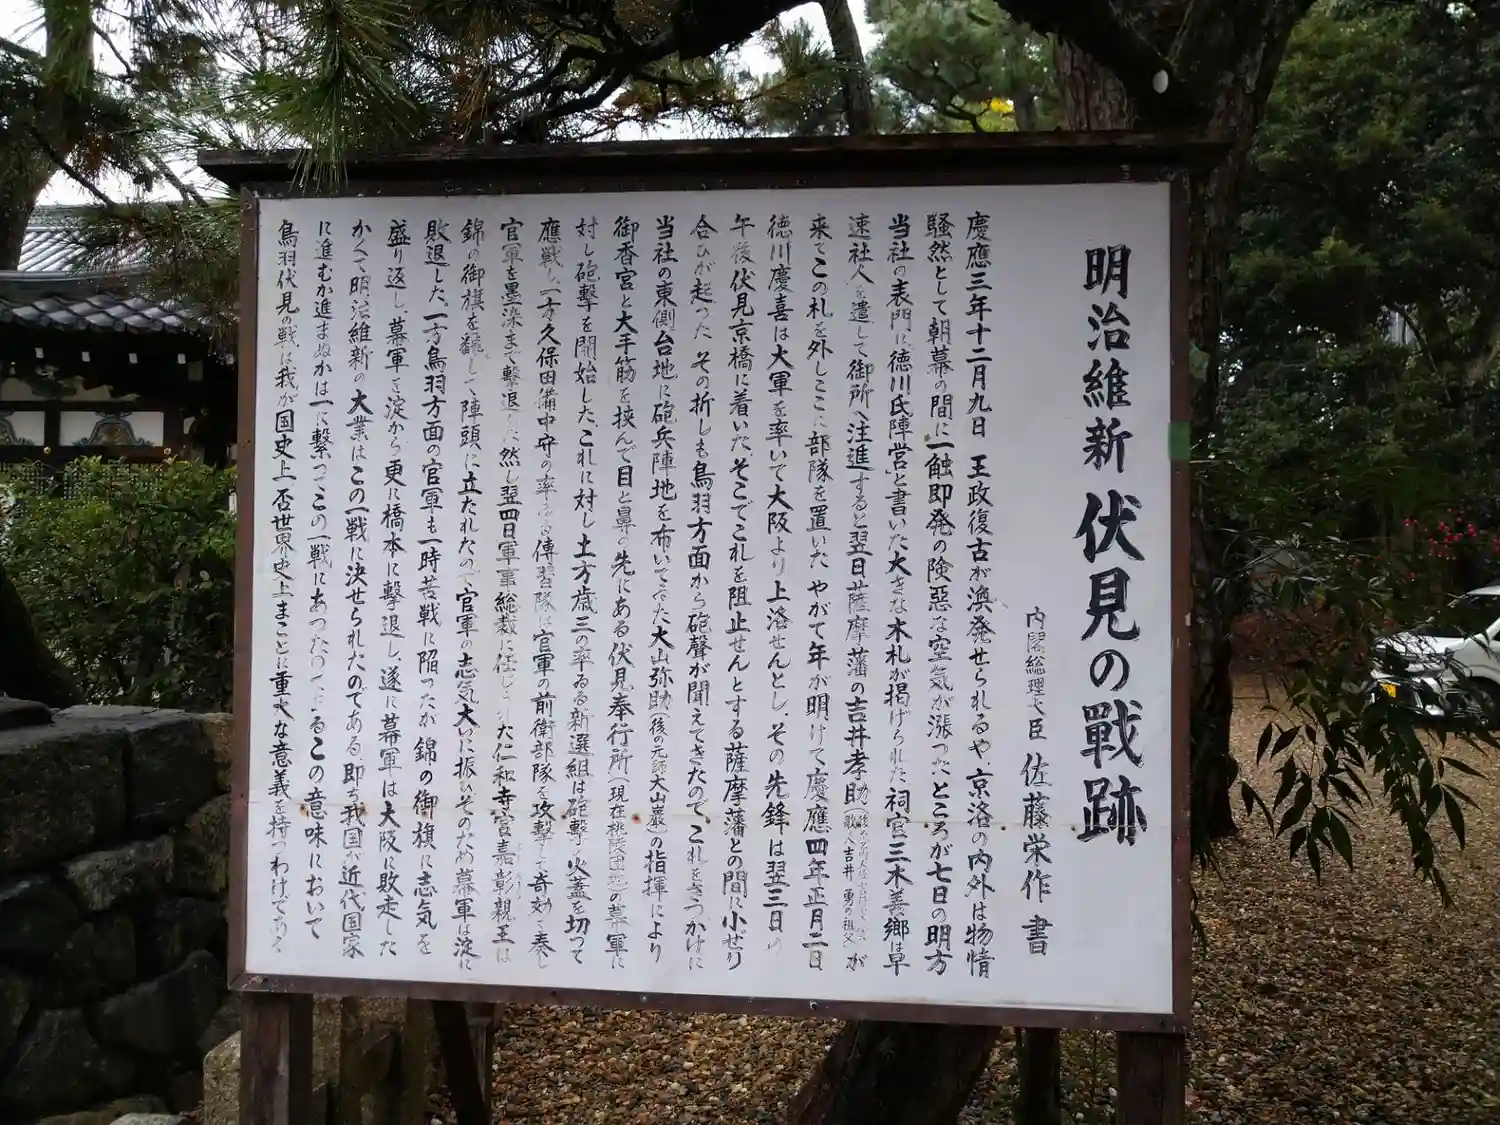 明治維新 伏見の戰跡
内閣総理大臣 佐藤栄作 書
慶應三年十二月九日 王政復古が渙発せられるや、京洛の内外は物情
騒然として朝幕の間に一触即発の険悪な空気が漲つたところが七日の明方
当社の表門に徳川氏陣営と書いた大きな木札が掲げられた、祠官三木善郷は早
速社人を遣して御所へ注進すると翌日薩摩藩の吉井孝助 歌人吉井 勇の祖父 が
来てこの札を外しここに部隊を置いた やがて年が明けて慶應四年正月二日
徳川慶喜は大軍を率いて大阪より上洛せんとし、その先鋒は翌三日の
午後伏見京橋に着いた そこでこれを阻止せんとする薩摩藩との間に小ぜり
合ひが起つた その折しも鳥羽方面から砲聲が聞えてきたのでこれをきつかけに
当社の東側台地に砲兵陣地を布いてゐた大山弥助(後の元師大山巌)の指揮により
御香宮と大手筋を挟んで目と鼻の先にある伏見奉行所(現在桃陵団地)の幕軍に
対し砲撃を開始した、これに対し土方歳三の率ゐる新選組は砲撃の火蓋を切つて
應戦し、一方久保田備中守の率ゐる傳習隊は官軍の前衛部隊を攻撃して奇効を奏し
官軍を墨染まで撃退した 然し翌四日軍事総裁に任じられた仁和寺宮嘉彰親王は
錦の御旗を飜して陣頭に立たれたので官軍の志気大いに振ひそのため幕軍は淀に
敗退した、一方鳥羽方面の官軍も一時苦戦に陥つたが錦の御旗に志気を
盛り返し、幕軍を淀から更に橋本に撃退し、遂に幕軍は大阪に敗走した
かくて明治維新の大業はこの一戦に決せられたのである、即ち我国が近代国家
に進むか進まぬかは一に繋つてこの一戦にあつたのである この意味において
鳥羽伏見の戦は我が国史上 否世界史上まことに重大な意義を持つわけである